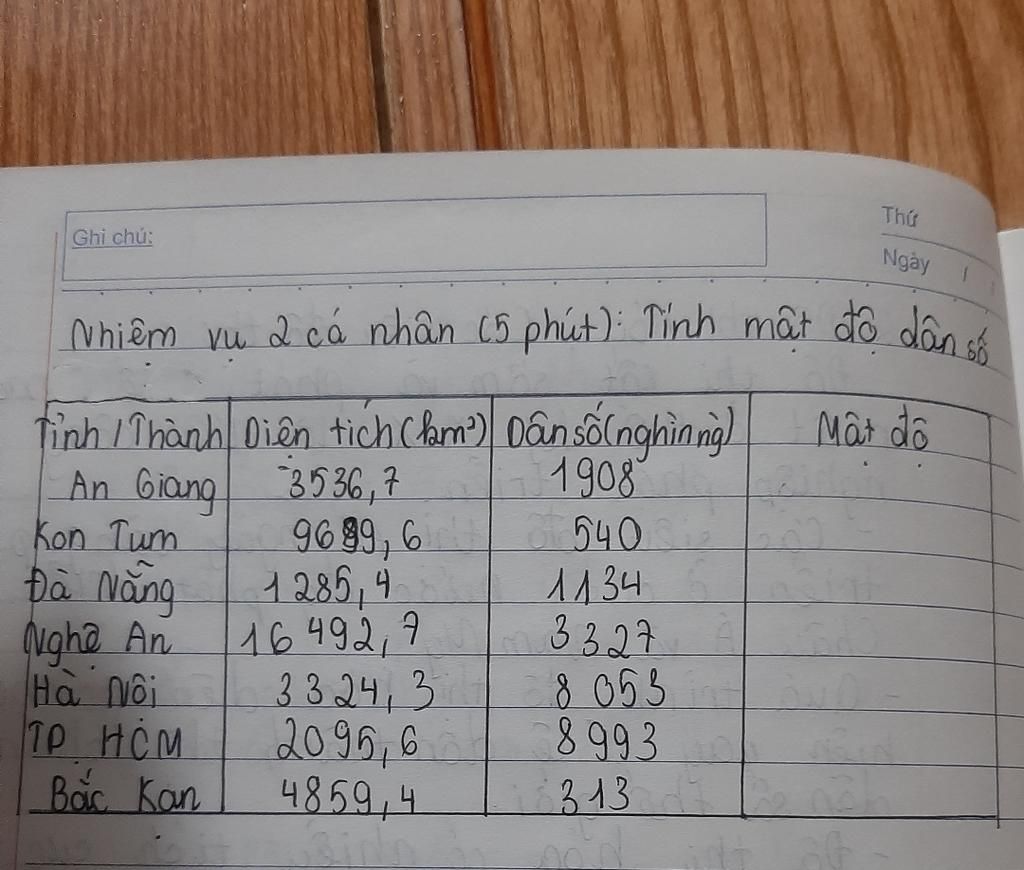 Ghi chú:
Thứ
Ngày / /
Nhiệm vụ 2 cá nhân (5 phút): Tính mật độ dân số
Tỉnh/Thành Diện tích (km²) Dân số (nghìn ng) Mật độ
An Giang 3536,7 1908
Kon Tum 9689,6 540
Đà Nẵng 1285,4 1134
Nghệ An 16 492,7 3327
Hà Nôi 3324,3 8 053
TP HCM 2095,6 8993
Bắc Kan 4859,4 313